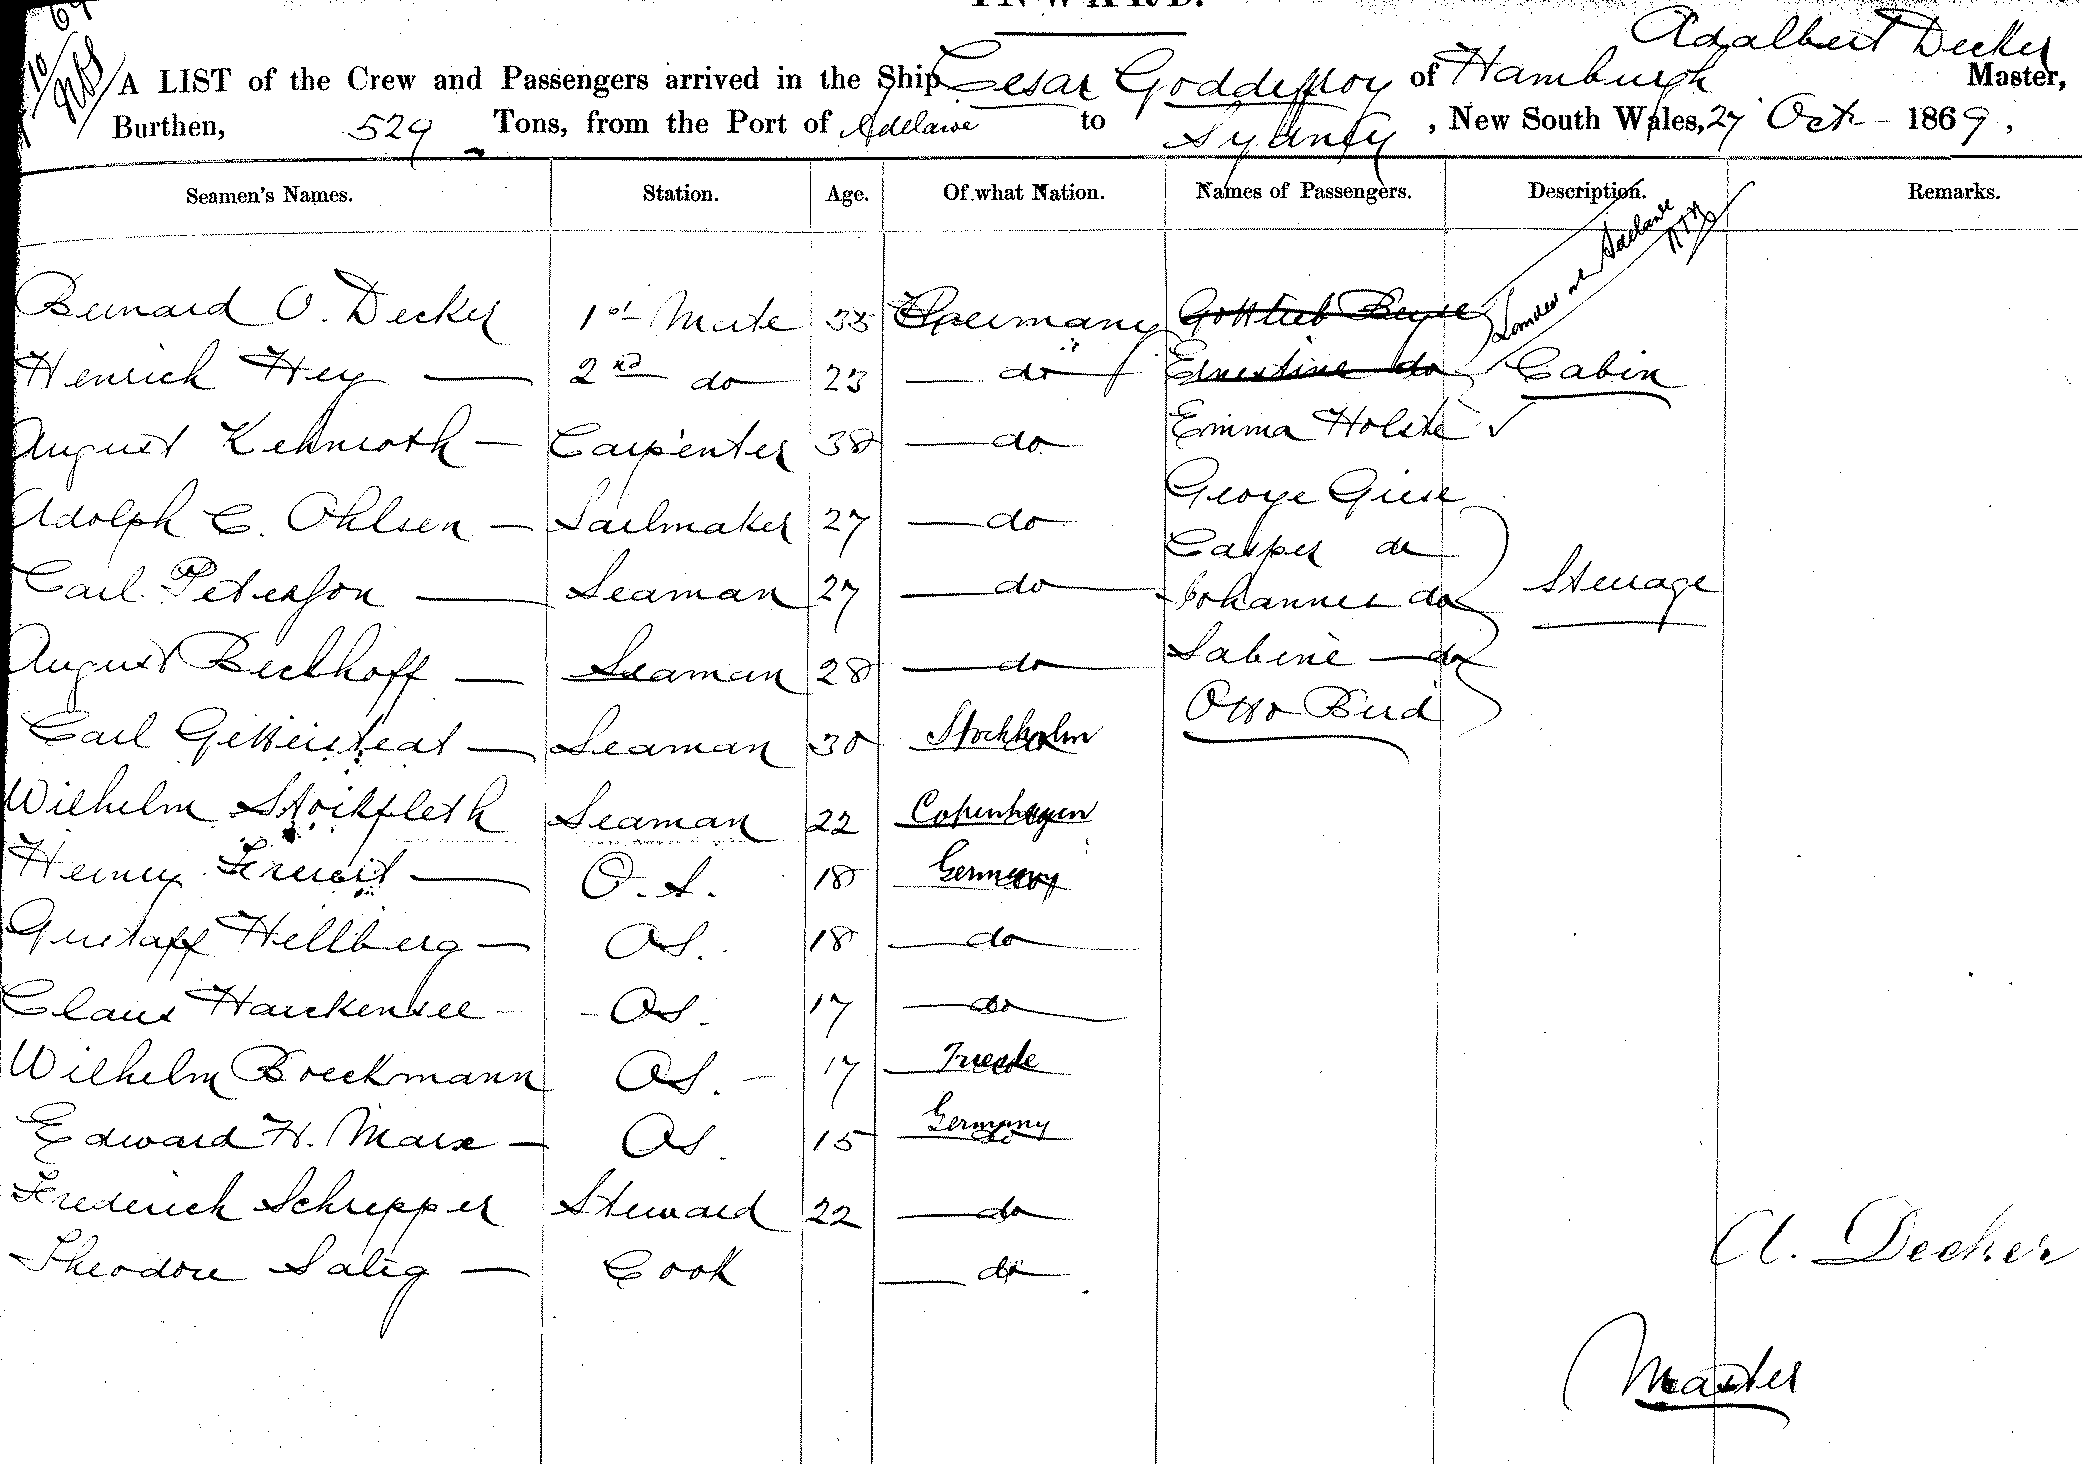 INWARD.
A LIST of the Crew and Passengers arrived in the Ship Cesar Goddeffroy of Hamburgh Adalbert Decker Master,
Burthen, 529 Tons, from the Port of Adelaide to Sydney, New South Wales, 27 Oct 1869,
Seamen's Names. Station. Age. Of what Nation. Names of Passengers. Description. Remarks.
Bernard O. Decker 1st Mate 35 Germany Gottlieb
Landed at Adelaide
Henrich Hey — 2nd do 23 — do Ernestine do Cabin
August — Carpenter 38 — do Emma Holste ✓
George Giese
Adolph C. Ohlsen — Sailmaker 27 — do
Casper do
Carl Peterson — Seaman 27 — do — Johannes do Steerage
August Beckhoff — Seaman 28 — do — Sabine — do
Otto Bird
Carl — Seaman 30 Stockholm
Wilhelm Seaman 22 Copenhagen
Henry — O.S. 18 Germany
Gustaff Hellberg — OS. 18 — do —
Claus Harckensee — OS. 17 — do —
Wilhelm Boeckmann OS. — 17
Edward H. Marx — OS. 15 Germany
Frederich Schrepper Steward 22 — do
Theodore Salig — Cook — do
A. Decker
Master